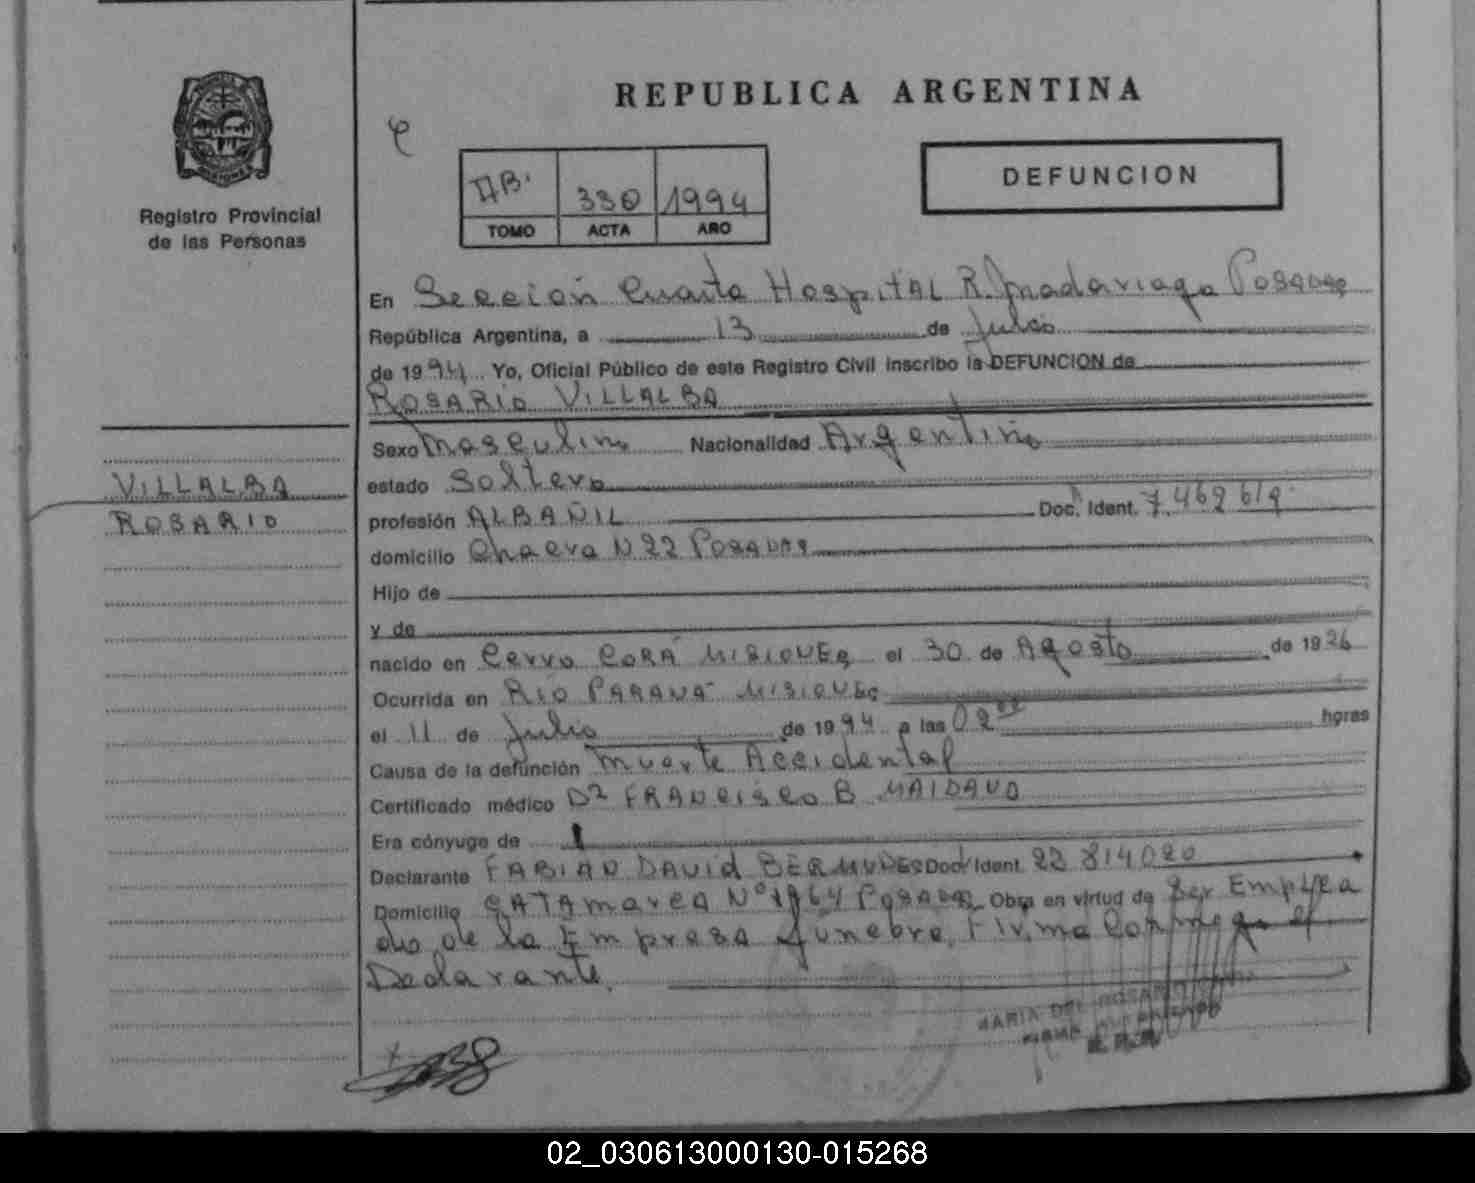 REPUBLICA ARGENTINA
DEFUNCION
330 1994
TOMO ACTA AÑO
Registro Provincial
de las Personas
En Sección Cuarta Hospital R. Madariaga Posadas
República Argentina, a 13 de Julio
de 1994 Yo, Oficial Público de este Registro Civil inscribo la DEFUNCION de
ROSARIO VILLALBA
VILLALBA
ROSARIO
Sexo Masculino Nacionalidad Argentino
estado Soltero
profesión ALBAÑIL Doc. Ident. 7.469619
domicilio Chacra N 22 POSADAS
Hijo de
y de
nacido en Cerro CORÁ MISIONES el 30 de Agosto de 1926
Ocurrida en RIO PARANÁ MISIONES
el 11 de Julio de 1994 a las 02 horas
Causa de la defunción Muerte Accidental
Certificado médico Dr FRANCISCO B MAIDANO
Era cónyuge de
Declarante FABIAN DAVID BERMUDES Doc Ident. 22 814020
Domicilio CATAMARCA Nº 1964 POSADAS Obra en virtud de Ser Emplea
do de la Empresa fúnebre, Firma Conmigo el
Declarante.
MARIA DEL ROSARIO
02_030613000130-015268